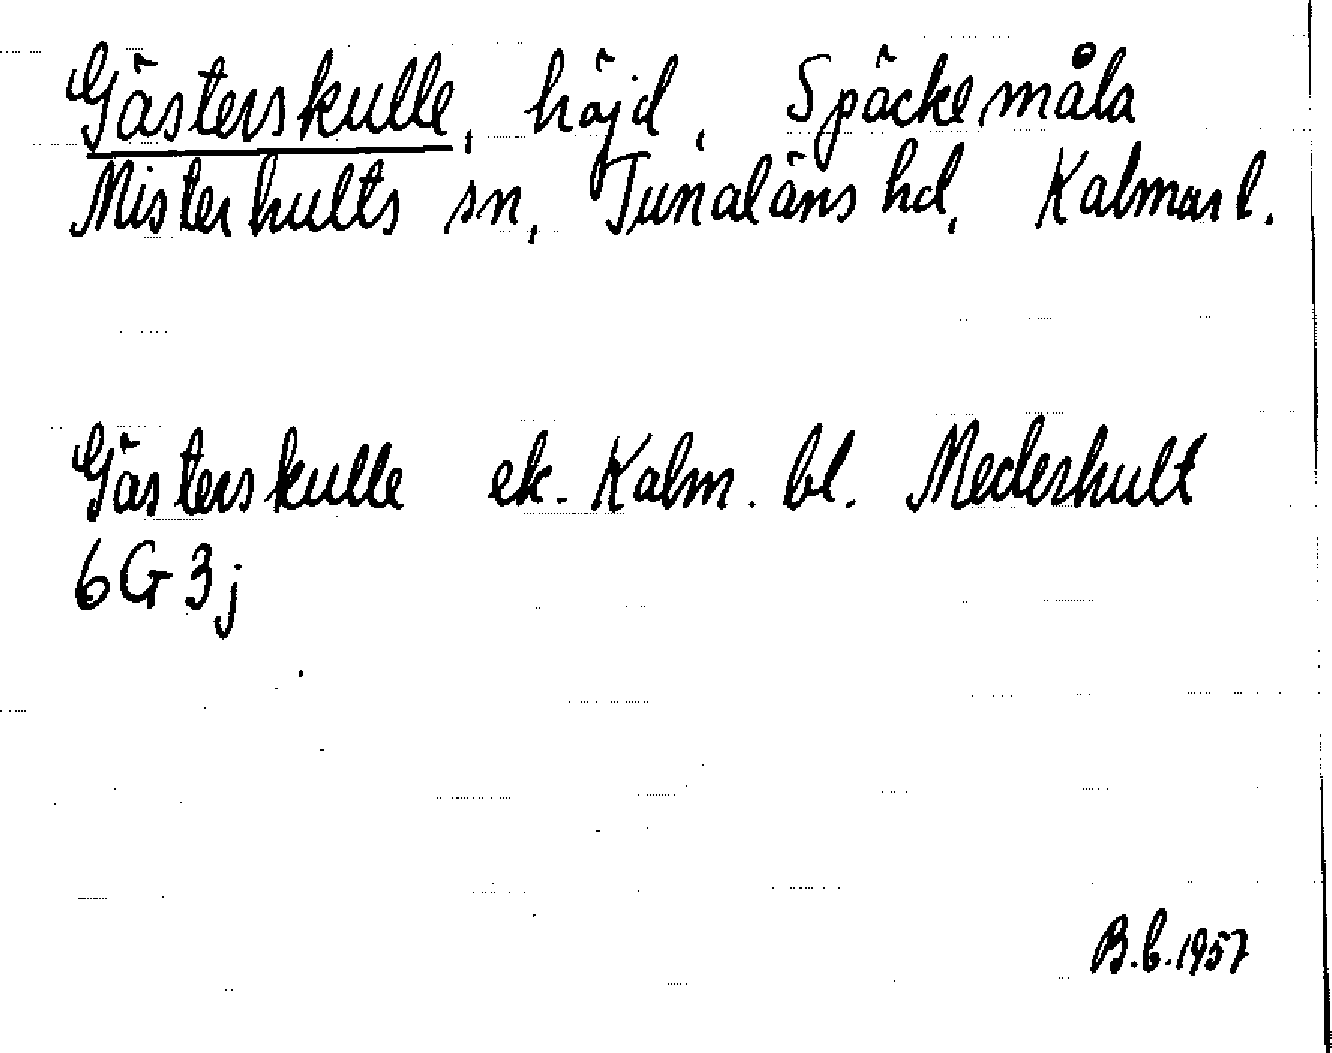 Gästerskulle, höjd, Späckemåla
Misterhults sn, Tunaläns hd, Kalmar l.
Gästerskulle ek. Kalm. bl. Mederhult
6G3j
B.b.1957